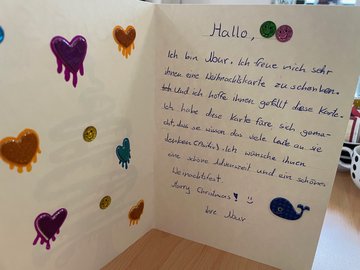 Hallo,
Ich bin Nour. Ich freue mich sehr
ihnen eine Weihnachtskarte zu schenken.
Und ich hoffe ihnen gefällt diese Karte.
Ich habe diese Karte für sie gema-
cht, das sie wissen das viele Leute an sie
denken. Ich wünsche ihnen
eine schöne Adventzeit und ein schönes
Weinachtsfest
Merry Christmas!
Ihre Nour